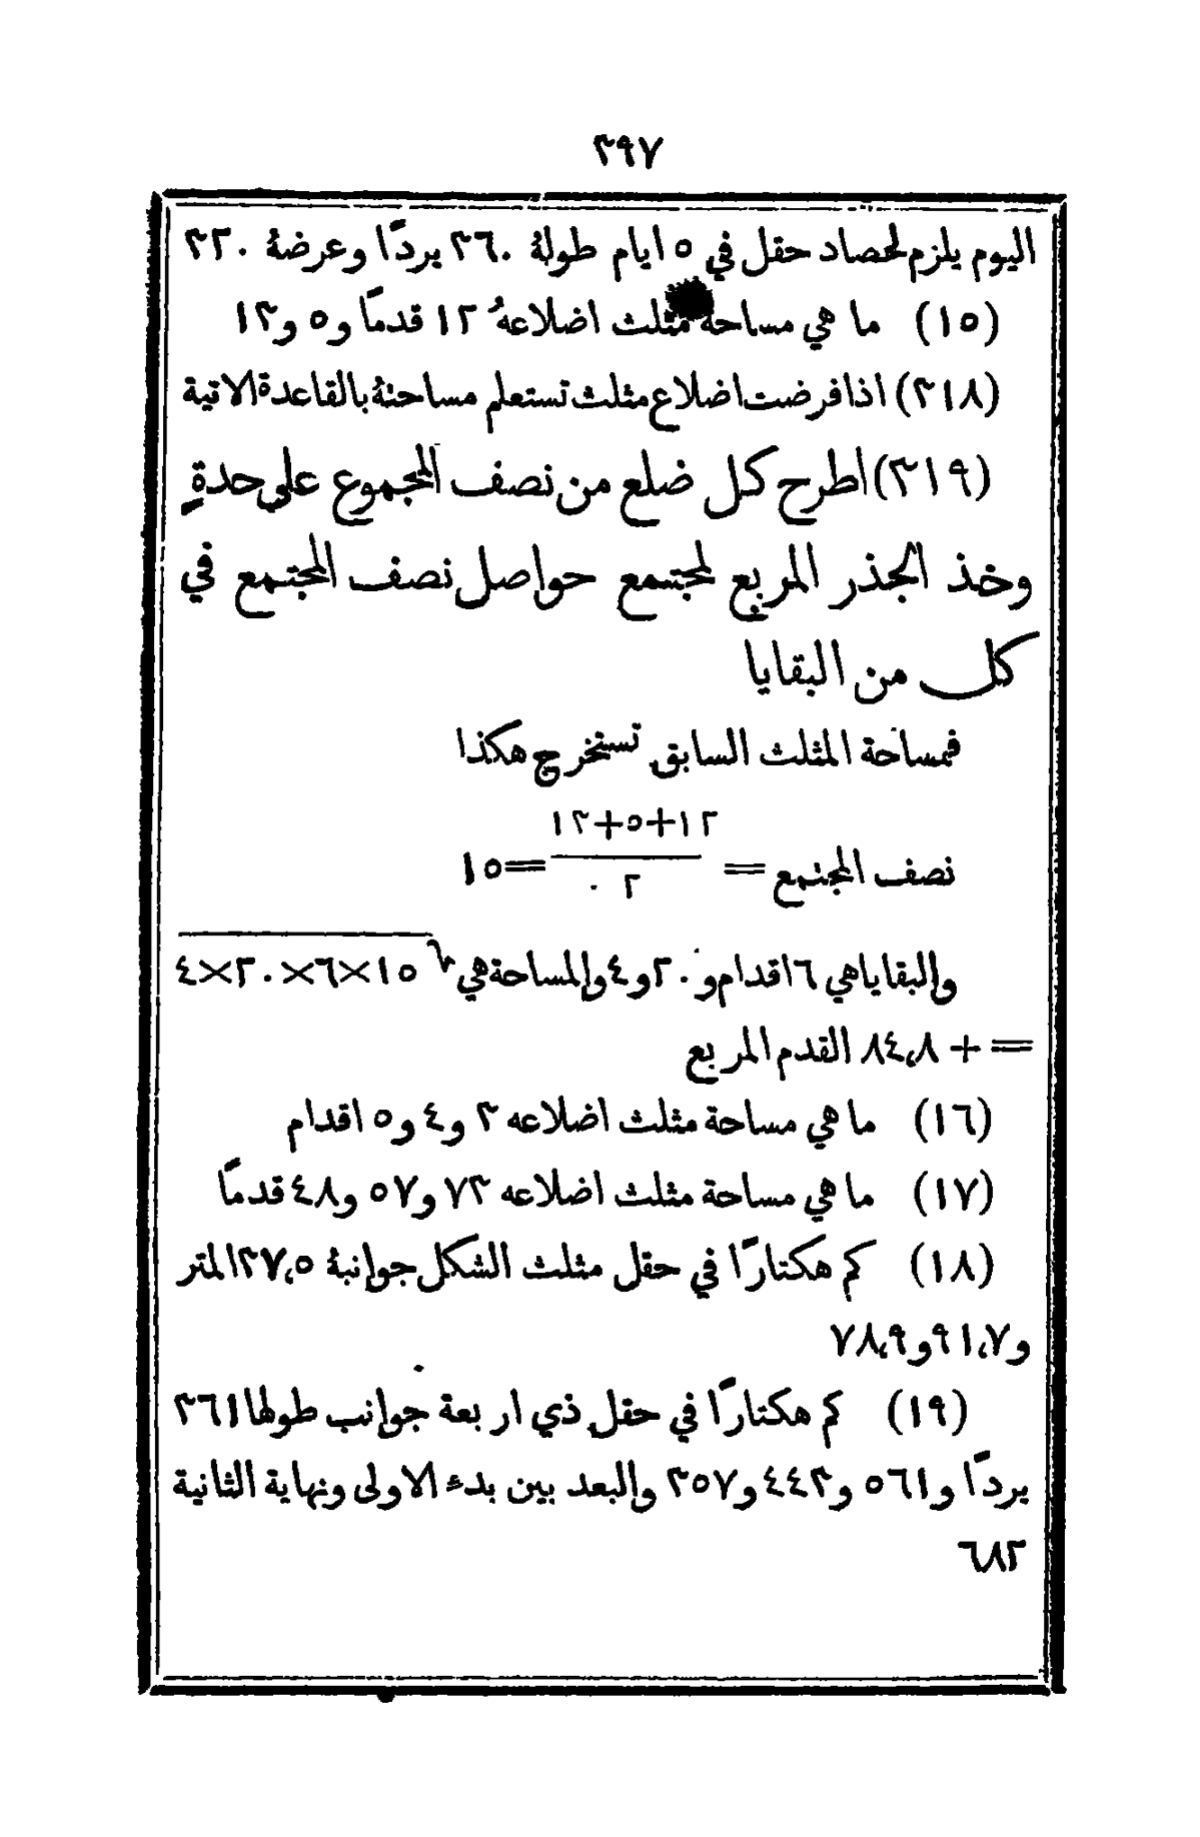 ٣٩٧
اليوم يلزم لحصاد حقل في ٥ ايام طولهُ ٣٦٠ يردًا وعرضهُ ٣٢٠
(١٥) ما هي مساحة مثلث اضلاعهُ ١٢ قدمًا و٥ و١٣
(٣١٨) اذا فرضت اضلاع مثلث تستعلم مساحتهُ بالقاعدة الاتية
(٣١٩) اطرح كل ضلع من نصف المجموع على حدةٍ
وخذ الجذر المربع لمجتمع حواصل نصف المجتمع في
كل من البقايا
فمساحة المثلث السابق تستخرج هكذا
نصف المجتمع = ١٢+٥+١٣ / ٢ = ١٥
والبقايا هي ٦ اقدام و٢٠ و٤ والمساحة هي √١٥×٦×٢٠×٤
= + ٨٤،٨ القدم المربع
(١٦) ما هي مساحة مثلث اضلاعه ٣ و٤ و٥ اقدام
(١٧) ما هي مساحة مثلث اضلاعه ٧٣ و٥٧ و٤٨ قدمًا
(١٨) كم هكتارًا في حقل مثلث الشكل جوانبهُ ٣٧،٥ المتر
و٩١،٧ و٧٨،٩
(١٩) كم هكتارًا في حقل ذي اربعة جوانب طولها ٣٦١
يردًا و٥٦١ و٤٤٣ و٣٥٧ والبعد بين بدء الاولى ونهاية الثانية
٦٨٢